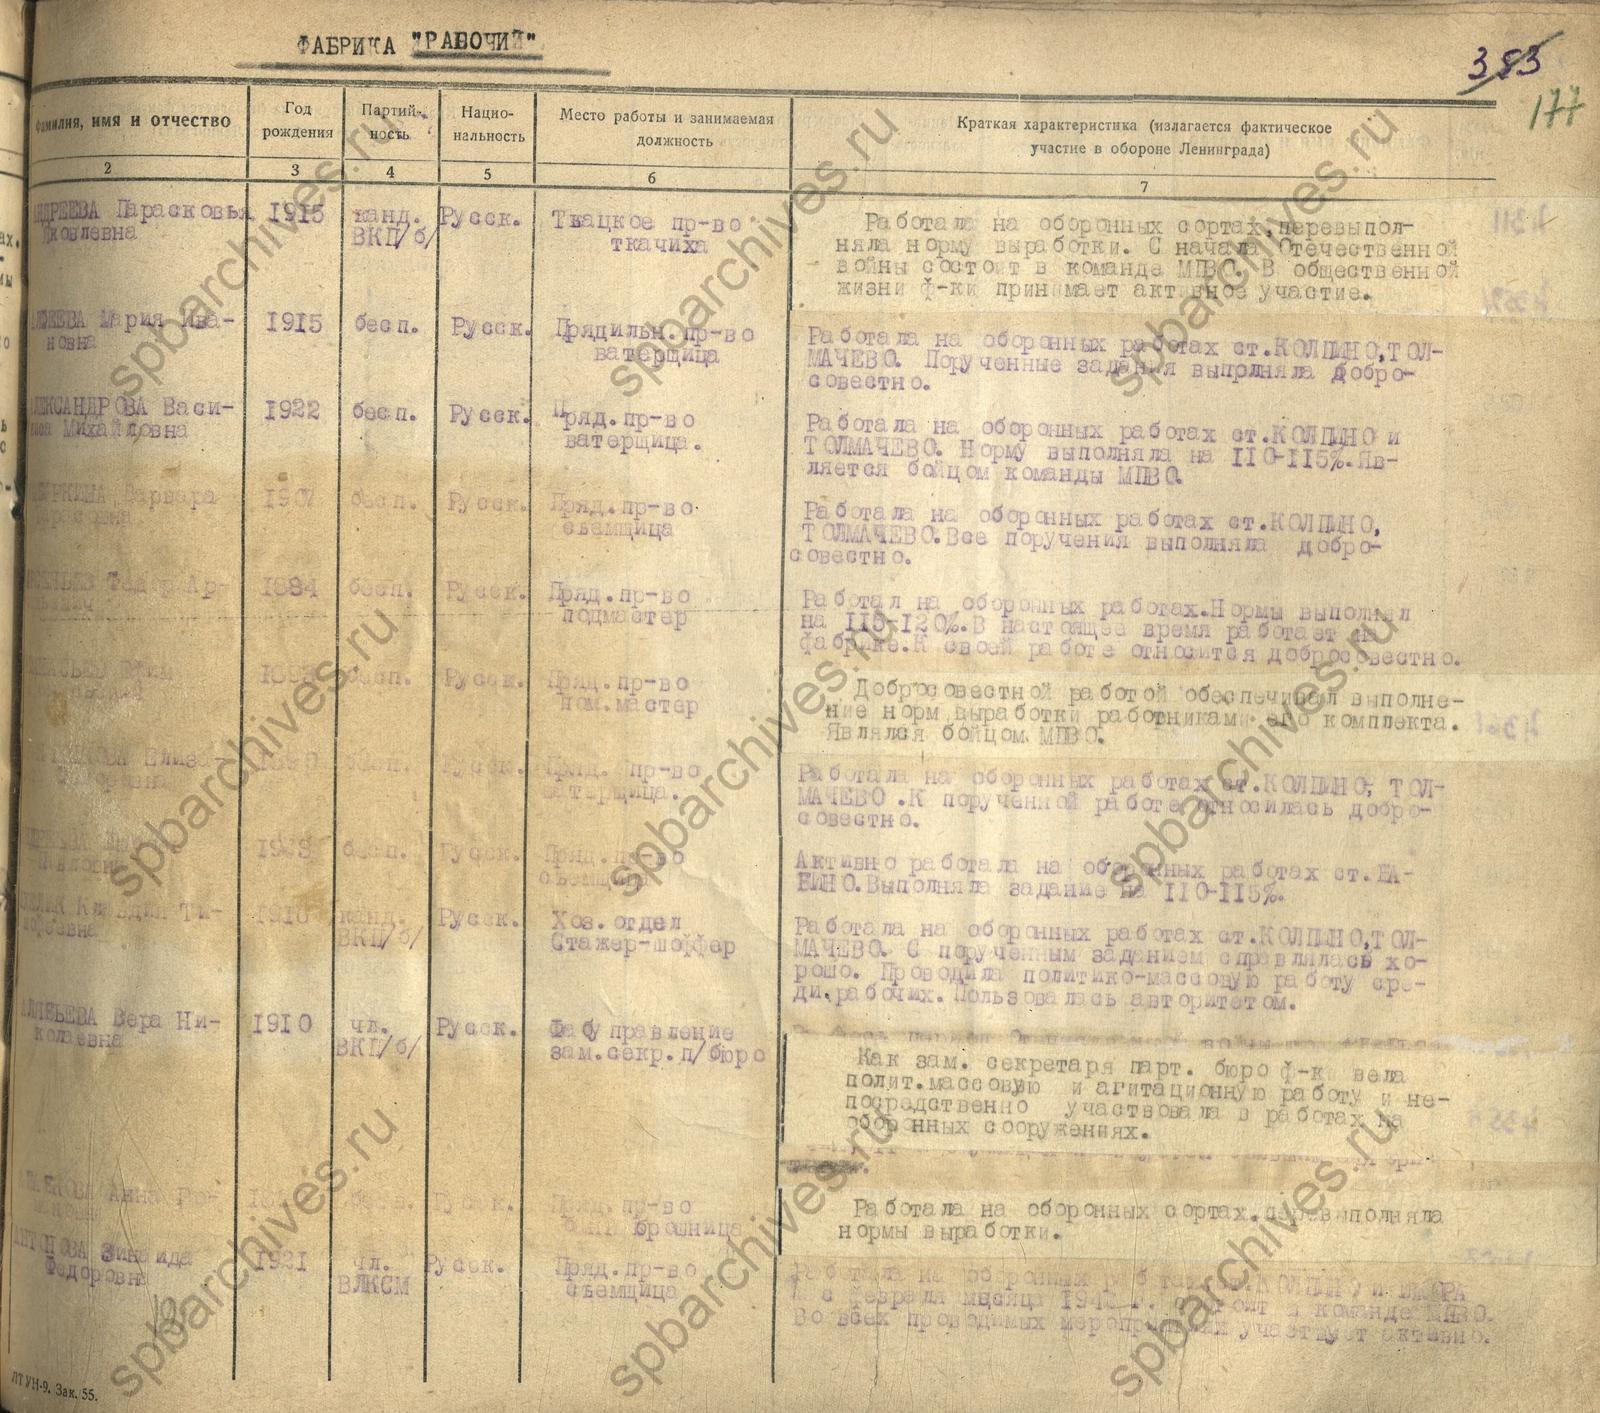 ФАБРИКА "РАБОЧИЙ"
353
177
Фамилия, имя и отчество
Год рождения
Партий-ность
Нацио-нальность
Место работы и занимаемая должность
Краткая характеристика (излагается фактическое участие в обороне Ленинграда)
2 3 4 5 6 7
АНДРЕЕВА Парасковья 1915 канд. Русск. Ткацкое пр-во
Яковлевна ВКП/б/ ткачиха
Работала на оборонных сортах, перевыпол-
няла норму выработки. С начала Отечественной
войны состоит в команде МПВО. В общественной
жизни ф-ки принимает активное участие.
Мария Ива- 1915 бесп. Русск. Прядильн. пр-во
новна ватерщица
Работала на оборонных работах ст.КОЛПИНО,ТОЛ-
МАЧЕВО. Порученные задания выполняла добро-
совестно.
АЛЕКСАНДРОВА Васи- 1922 бесп. Русск. Пряд.пр-во
Михайловна ватерщица.
Работала на оборонных работах ст.КОЛПИНО и
ТОЛМАЧЕВО. Норму выполняла на 110-115%.Яв-
ляется бойцом команды МПВО.
Варвара 1907 бесп. Русск. Пряд.пр-во
съемщица
Работала на оборонных работах ст.КОЛПИНО,
ТОЛМАЧЕВО.Все поручения выполняла добро-
совестно.
Федор Ар- 1884 бесп. Русск. Пряд.пр-во
подмастер
Работал на оборонных работах.Нормы выполнял
на 115-120%.В настоящее время работает на
фабрике.К своей работе относится добросовестно.
бесп. Русск. Пряд.пр-во
пом.мастер
Добросовестной работой обеспечивал выполне-
ние норм выработки работниками его комплекта.
Являлся бойцом МПВО.
Елиза- бесп. Русск. Пряд. пр-во
ватерщица.
Работала на оборонных работах ст.КОЛПИНО, ТОЛ-
МАЧЕВО .К порученной работе относилась добро-
совестно.
бесп. Русск. Пряд.пр-во
съемщица
Активно работала на оборонных работах ст.
Выполняла задание на 110-115%.
Клавдия Ти- 1910 канд. Русск. Хоз.отдел
ВКП/б/ Стажер-шоффер
Работала на оборонных работах ст.КОЛПИНО,ТОЛ-
МАЧЕВО. С порученным заданием справлялась хо-
рошо. Проводила политико-массовую работу сре-
ди.рабочих. Пользовалась авторитетом.
Вера Ни- 1910 чл. Русск. Фабуправление
колаевна ВКП/б/ зам.секр.п/бюро
Как зам. секретаря парт. бюро ф-ки вела
полит.массовую и агитационную работу и не-
посредственно участвовала в работах на
оборонных сооружениях.
Анна бесп. Русск. Пряд.пр-во
Работала на оборонных сортах.перевыполняла
нормы выработки.
АНТОНОВА Зинаида 1921 чл. Русск. Пряд.пр-во
Федоровна ВЛКСМ съемщица
Работала на оборонных работах КОЛПИНО и
с февраля месяца состоит в команде МПВО.
Во всех проводимых мероприятиях участвует активно.
ЛТУН-9. Зак. 55.
spbarchives.ru
spbarchives.ru
spbarchives.ru
spbarchives.ru
spbarchives.ru
spbarchives.ru
spbarchives.ru
spbarchives.ru
spbarchives.ru